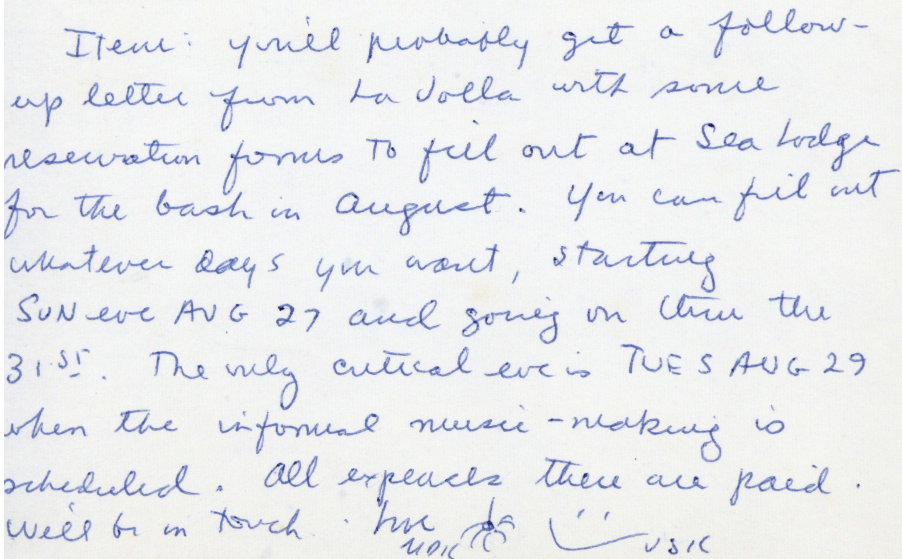 Item: you'll probably get a follow-
up letter from La Jolla with some
reservation forms to fill out at Sea Lodge
for the bash in August. You can fill out
whatever days you want, starting
SUN eve AUG 27 and going on thru the
31st. The only critical eve is TUES AUG 29
when the informal music-making is
scheduled. All expenses there are paid.
We'll be in touch. Love